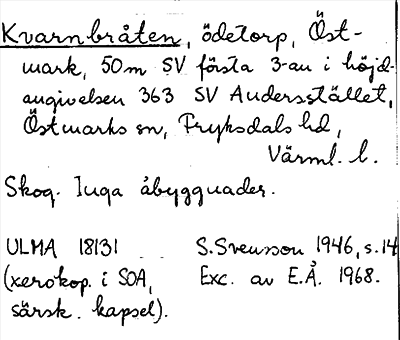 Kvarnbråten, ödetorp, Öst-
mark, 50m SV första 3-an i höjd-
angivelsen 363 SV Andersstället,
Östmarks sn, Fryksdals hd,
Värml. l.
Skog. Inga åbyggnader.
ULMA 18131 S. Svensson 1946, s. 14
(xerokop. i SOA, Exc. av E.Å. 1968.
särsk. kapsel).